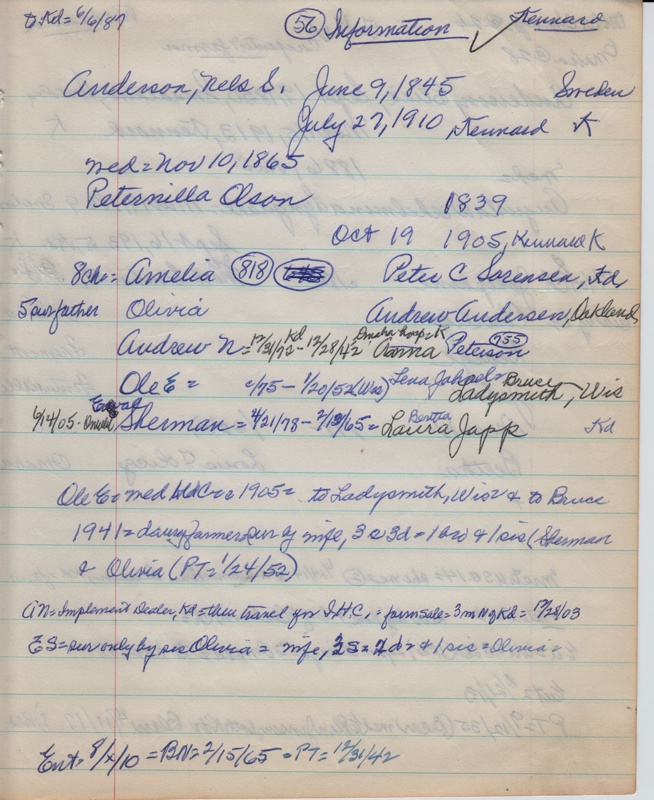 to Kd = 6/6/87 (56) Information ✓ Kennard
Anderson, Nels S. June 9, 1845 Sweden
July 27, 1910 Kennard K
med = Nov 10, 1865
Peternilla Olson 1839
Oct 19 1905, Kennard K
8ch = Amelia (818) Peter C Sorensen, Kd,
5 sur father Olivia Andrew Andersen, Oakland,
Andrew N = 12/31/72 Kd - 12/28/42 Omaha hosp = K Anna Peterson 755
Ole E = /75 - 1/20/52 (Wis) Lena Bruce Ladysmith, Wis
6/14/05 - Sherman = 4/21/78 - 2/13/65 = Bertha Laura Japp Kd
Ole E = med = 1905 = to Ladysmith, Wis = & to Bruce
1941 = dairy farmer = sur by wife, 3s 3d = 1 bro & 1 sis (Sherman
& Olivia (PT = 1/24/52)
AN = Implement Dealer, Kd = then travel for I.H.C. = farm sale = 3m N of Kd = 12/28/03
ES = sur only by sis Olivia = wife, 2s = 2d = & 1 sis = Olivia =
Ent = 8/x/10 = BN = 2/15/65 = PT = 12/31/42